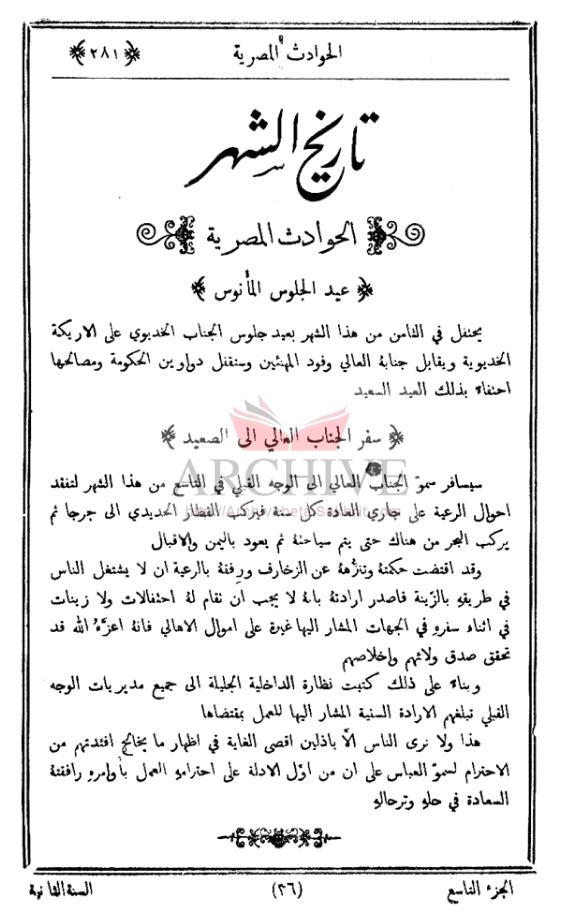 الحوادث المصرية ﴿٢٨١﴾
تاريخ الشهر
الحوادث المصرية
﴿ عيد الجلوس المأنوس ﴾
يحتفل في الثامن من هذا الشهر بعيد جلوس الجناب الخديوي على الاريكة
الخديوية ويقابل جنابهُ العالي وفود المهنئين وستقفل دواوين الحكومة ومصالحها
احتفاءً بذلك العيد السعيد
﴿ سفر الجناب العالي الى الصعيد ﴾
ARCHIVE
سيسافر سموّ الجناب العالي الى الوجه القبلي في التاسع من هذا الشهر لتفقد
احوال الرعية على جاري العادة كل سنة فيركب القطار الحديدي الى جرجا ثم
يركب البحر من هناك حتى يتم سياحتهُ ثم يعود باليمن والاقبال
وقد اقتضت حكمتهُ وتنزُّههُ عن الزخارف ورفقهُ بالرعية ان لا يشتغل الناس
في طريقهِ بالزّينة فاصدر ارادتهُ بانهُ لا يجب ان تقام لهُ احتفالات ولا زينات
في اثناء سفرهِ في الجهات المشار اليها غيرة على اموال الاهالي فانهُ اعزَّهُ الله قد
تحقق صدق ولائهم وإخلاصهم
وبناءً على ذلك كتبت نظارة الداخلية الجليلة الى جميع مديريات الوجه
القبلي تبلغهم الارادة السنية المشار اليها للعمل بمقتضاها
هذا ولا نرى الناس الّا باذلين اقصى الغاية في اظهار ما يخالج افئدتهم من
الاحترام لسموّ العباس على ان من اوّل الادلة على احترامهِ العمل بأوامرهِ رافقتهُ
السعادة في حلهِ وترحالهِ
الجزء التاسع (٣٦) السنة الثانية